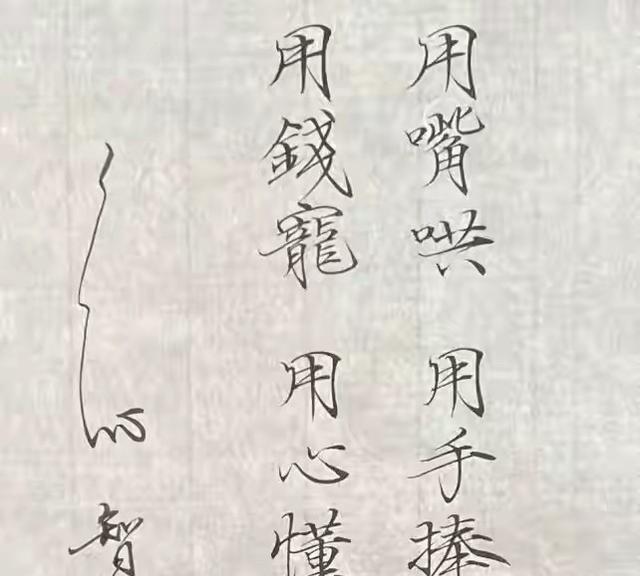 用嘴哄 用手捧
用錢寵 用心懂
智